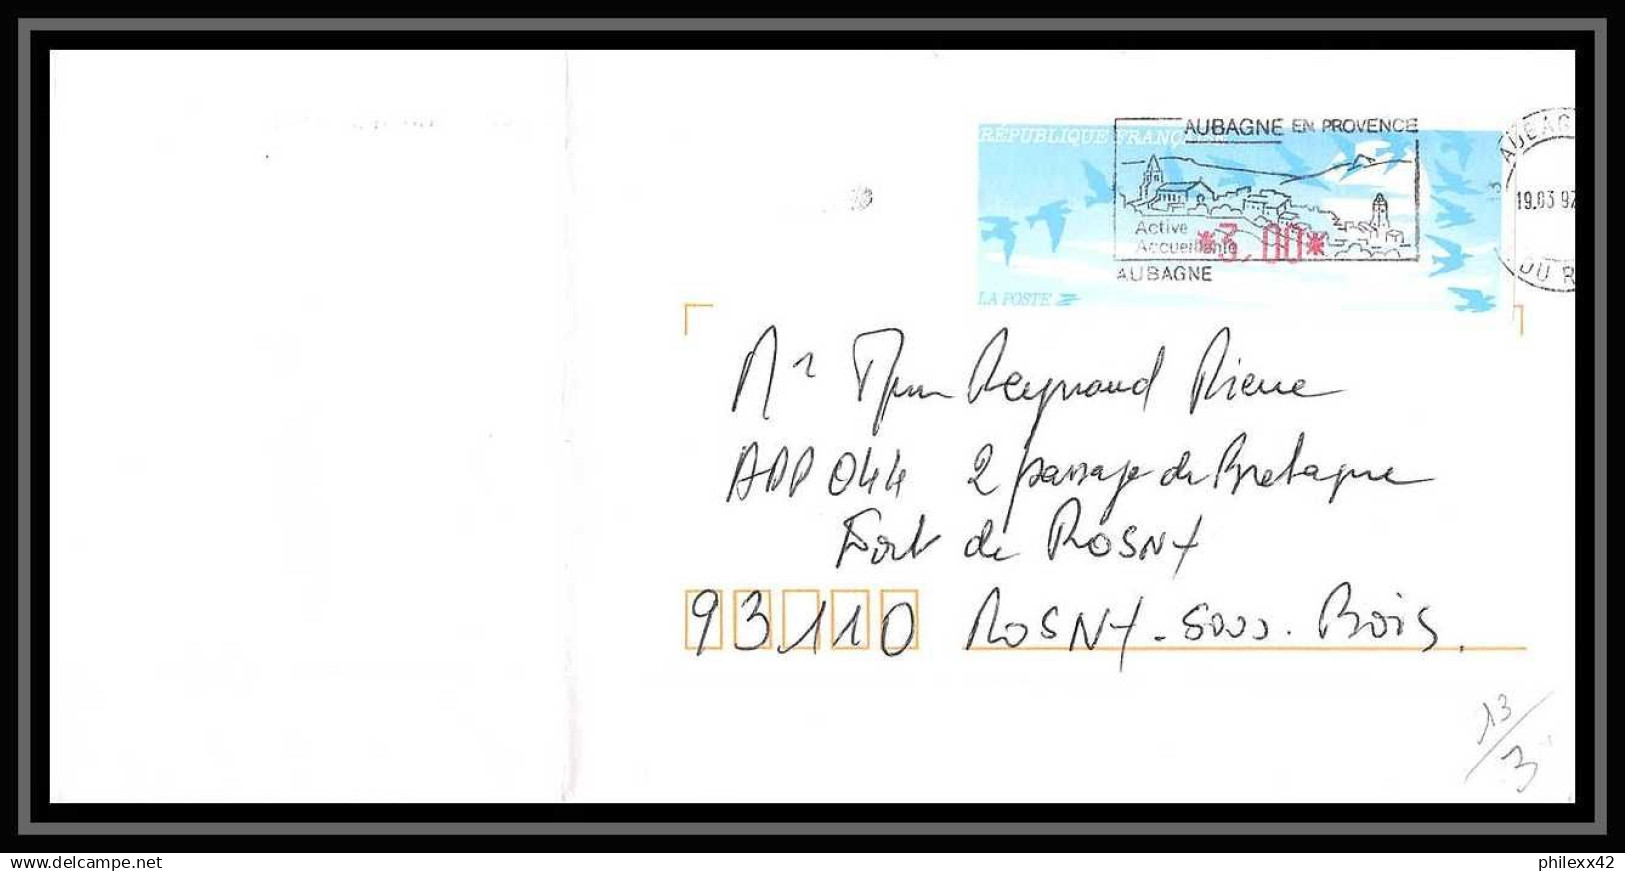 AUBAGNE EN PROVENCE
RÉPUBLIQUE FRANÇAISE
AUBAG
19.03.97
Active
Accueillante
*3,00*
AUBAGNE
DU R
LA POSTE
Mr Mme Reynaud Pierre
APP 044 2 passage de Bretagne
Fort de ROSNY
93110 ROSNY-sous-Bois.
13/3
www.delcampe.net
philexx42